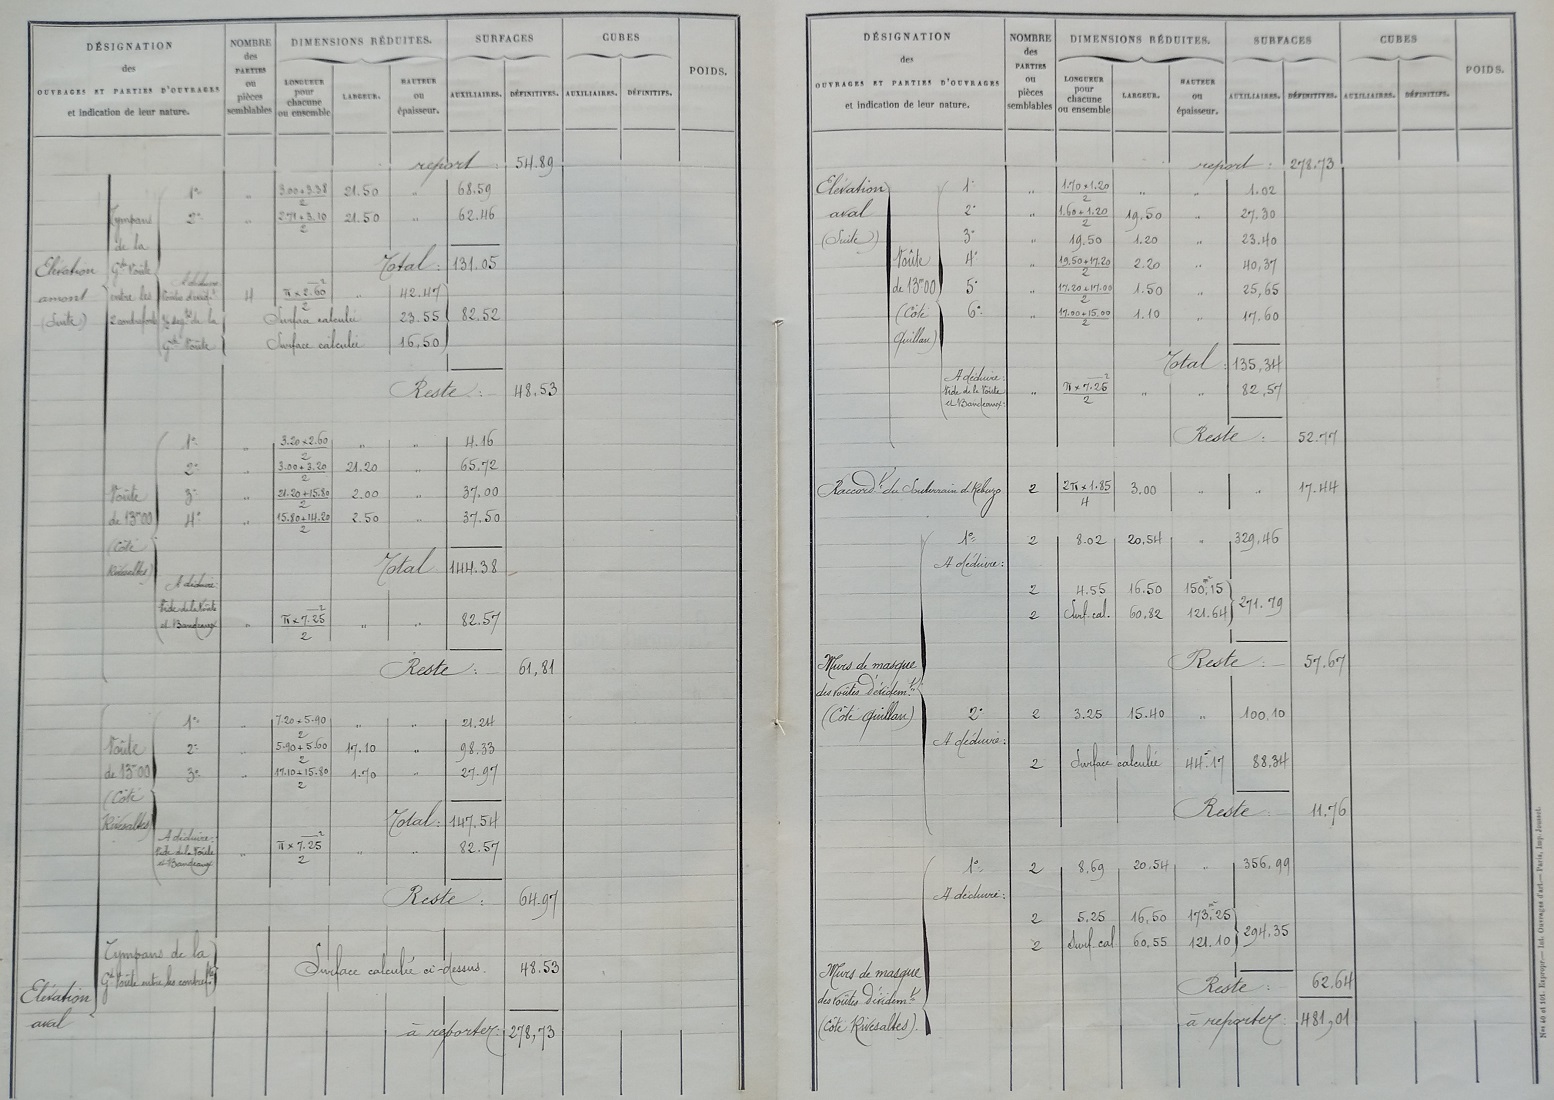 DÉSIGNATION
des
OUVRAGES ET PARTIES D'OUVRAGES
et indication de leur nature.
NOMBRE des PARTIES ou pièces semblables
DIMENSIONS RÉDUITES.
LONGUEUR pour chacune ou ensemble
LARGEUR.
HAUTEUR ou épaisseur.
SURFACES
AUXILIAIRES.
DÉFINITIVES.
CUBES
AUXILIAIRES.
DÉFINITIFS.
POIDS.
report : 54.89
Elévation amont (Suite)
Tympans de la Gde Voûte entre les 2 contreforts
1° " 3.00+3.38/2 21.50 " 68.59
2° " 2.71+3.10/2 21.50 " 62.46
Total : 131.05
A déduire
4 π×2.60²/2 " 42.47
Surface calculée 23.55 82.52
Gde Voûte Surface calculée 16.50
Reste : 48.53
Voûte de 13m00 (Côté Rivesaltes)
1° " 3.20×2.60/2 " " 4.16
2° " 3.00+3.20/2 21.20 " 65.72
3° " 21.20+15.80/2 2.00 " 37.00
4° " 15.80+14.20/2 2.50 " 37.50
Total 144.38
A déduire
Vide de la Voûte et Bandeaux " π×7.25²/2 " " 82.57
Reste : 61,81
Voûte de 13m00 (Côté Rivesaltes)
1° " 7.20+5.90/2 " " 21.24
2° " 5.90+5.60/2 17.10 " 98.33
3° " 17.10+15.80/2 1.70 " 27.97
Total : 147.54
A déduire :
Vide de la Voûte et Bandeaux " π×7.25²/2 " " 82.57
Reste : 64.97
Elévation aval
Tympans de la Gde Voûte entre les contreforts
Surface calculée ci-dessus. 48.53
à reporter : 278,73
DÉSIGNATION
des
OUVRAGES ET PARTIES D'OUVRAGES
et indication de leur nature.
NOMBRE des PARTIES ou pièces semblables
DIMENSIONS RÉDUITES.
LONGUEUR pour chacune ou ensemble
LARGEUR.
HAUTEUR ou épaisseur.
SURFACES
AUXILIAIRES.
DÉFINITIVES.
CUBES
AUXILIAIRES.
DÉFINITIFS.
POIDS.
report : 278.73
Elévation aval (Suite)
Voûte de 13m00 (Côté Quillan)
1° " 1.70×1.20/2 " " 1.02
2° " 1.60+1.20/2 19,50 " 27.30
3° " 19,50 1.20 " 23.40
4° " 19.50+17.20/2 2.20 " 40,37
5° " 17.20+17.00/2 1.50 " 25,65
6° " 17.00+15.00/2 1.10 " 17.60
Total : 135,34
A déduire :
Vide de la Voûte et Bandeaux : " π×7.25²/2 " " 82,57
Reste : 52.77
Raccordt du Souterrain de Rébuzo 2 2π×1.85/4 3.00 " " 17.44
Murs de masque des voûtes d'évidemt (Côté Quillan)
1° 2 8.02 20,54 " 329,46
A déduire :
2 4.55 16.50 150m15
2 Surf. cal. 60,82 121.64 271.79
Reste : 57.67
2° 2 3.25 15.40 " 100,10
A déduire :
2 Surface calculée 44m17 88.34
Reste : 11.76
Murs de masque des voûtes d'évidemt (Côté Rivesaltes).
1° 2 8,69 20.54 " 356,99
A déduire :
2 5,25 16,50 173m25
2 Surf. cal 60,55 121.10 294.35
Reste : 62.64
à reporter : 481,01
Nos 40 et 101. Expropr.— Inf. Ouvrages d'art.— Paris, Imp. Jousset.